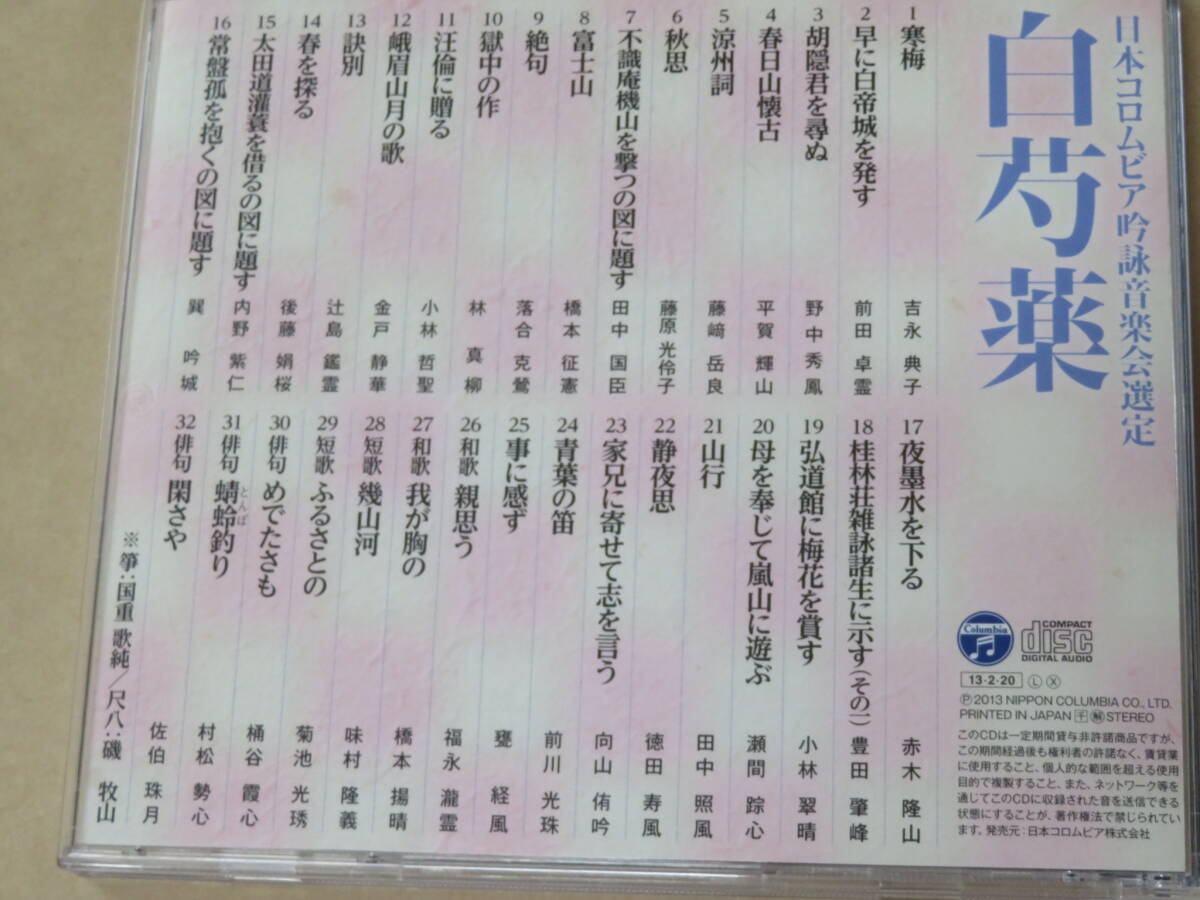 日本コロムビア吟詠音楽会選定
白芍薬
1 寒梅 吉永 典子
2 早に白帝城を発す 前田 卓霊
3 胡隠君を尋ぬ 野中 秀鳳
4 春日山懐古 平賀 輝山
5 涼州詞 藤﨑 岳良
6 秋思 藤原 光伶子
7 不識庵機山を撃つの図に題す 田中 国臣
8 富士山 橋本 征憲
9 絶句 落合 克鶯
10 獄中の作 林 真柳
11 汪倫に贈る 小林 哲聖
12 峨眉山月の歌 金戸 静華
13 訣別 辻島 鑑霊
14 春を探る 後藤 娟桜
15 太田道灌蓑を借るの図に題す 内野 紫仁
16 常盤孤を抱くの図に題す 巽 吟城
17 夜墨水を下る 赤木 隆山
18 桂林荘雑詠諸生に示す(その一) 豊田 肇峰
19 弘道館に梅花を賞す 小林 翠晴
20 母を奉じて嵐山に遊ぶ 瀬間 踪心
21 山行 田中 照風
22 静夜思 徳田 寿風
23 家兄に寄せて志を言う 向山 侑吟
24 青葉の笛 前川 光珠
25 事に感ず 甕 経風
26 和歌 親思う 福永 瀧霊
27 和歌 我が胸の 橋本 揚晴
28 短歌 幾山河 味村 隆義
29 短歌 ふるさとの 菊池 光琇
30 俳句 めでたさも 桶谷 霞心
31 俳句 蜻蛉釣り 村松 勢心
とんぼ
32 俳句 閑さや 佐伯 珠月
※ 箏:国重 歌純/尺八:磯 牧山
Columbia
COMPACT
disc
DIGITAL AUDIO
13・2・20 Ⓛ Ⓧ
Ⓟ2013 NIPPON COLUMBIA CO., LTD.
PRINTED IN JAPAN STEREO
このCDは一定期間貸与非許諾商品ですが、
この期間経過後も権利者の許諾なく、賃貸業
に使用すること、個人的な範囲を超える使用
目的で複製すること、また、ネットワーク等を
通じてこのCDに収録された音を送信できる
状態にすることが、著作権法で禁じられてい
ます。発売元:日本コロムビア株式会社